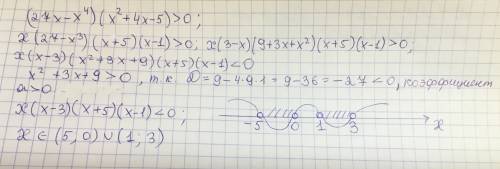 (27x-x⁴)(x²+4x-5)>0;
x(27-x³)(x+5)(x-1)>0; x(3-x)(9+3x+x²)(x+5)(x-1)>0;
x(x-3)(x²+3x+9)(x+5)(x-1)<0
x²+3x+9>0, т.к. D=9-4·9·1=9-36=-27<0, коэффициент
a>0
x(x-3)(x+5)(x-1)<0;
-5 0 1 3 x
x∈(5,0)∪(1;3)